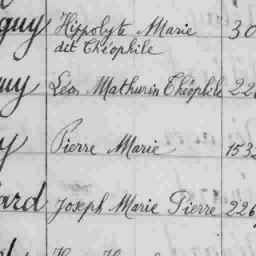 guy Hippolyte Marie 30
dit Théophile
uy Léon Mathurin Théophile 22
y Pierre Marie 153
ard Joseph Marie Pierre 226